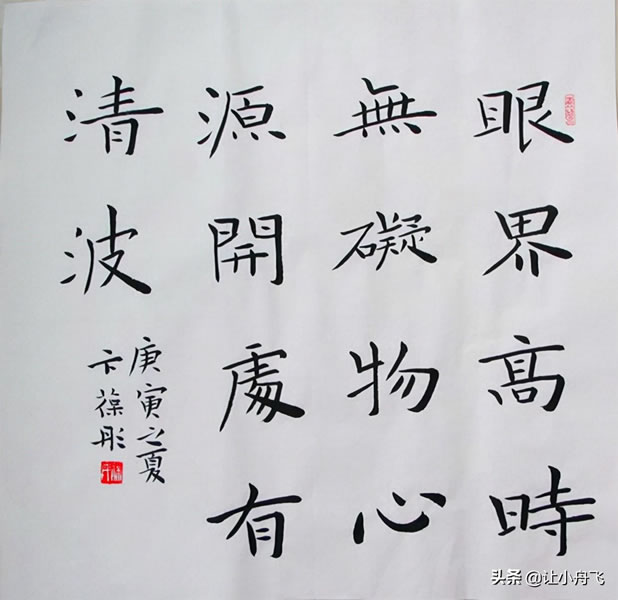 眼界高時
無礙物心
源開處有
清波
庚寅之夏
卞葆彤
头条 @让小舟飞